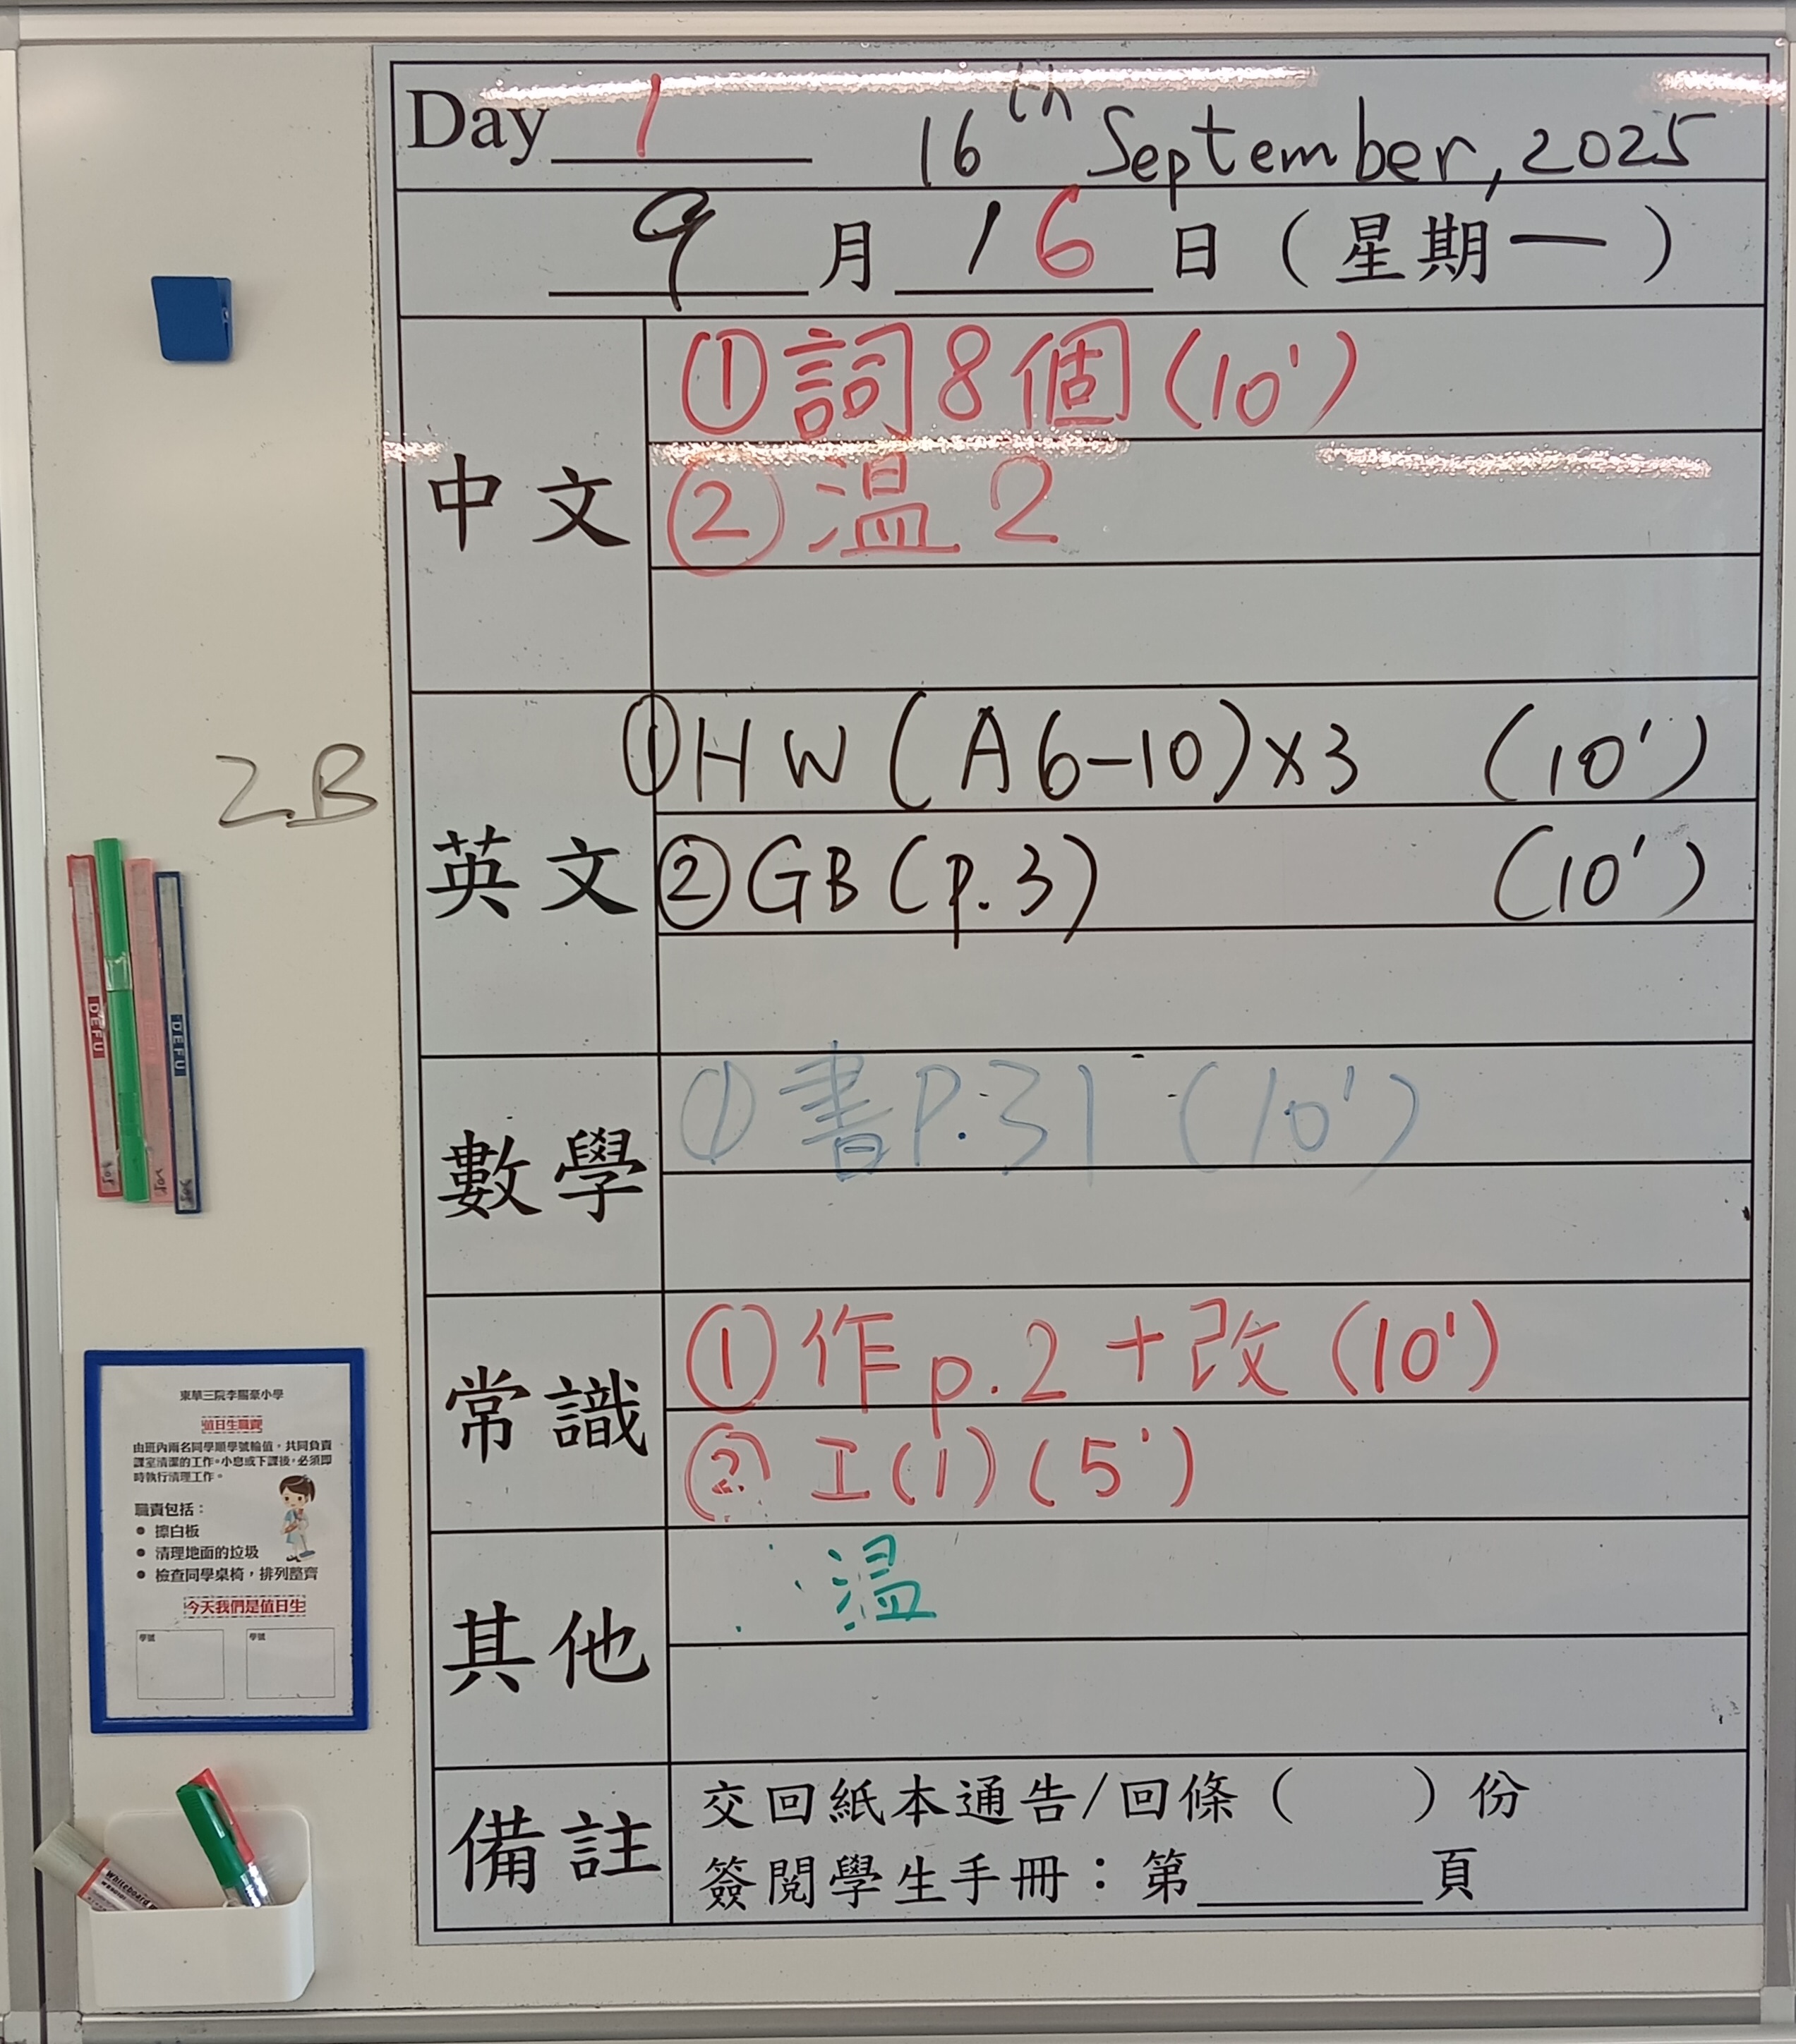 Day 1 16th September, 2025
9 月 16 日（星期一）
中文
①詞8個(10')
②温2
英文
①HW(A6-10)x3 (10')
②GB(p.3) (10')
2B
數學
①書P.31 (10')
常識
①作p.2+改(10')
②工(1)(5')
其他
温
備註
交回紙本通告/回條（ ）份
簽閱學生手冊：第 頁
DEFU
DEFU
東華三院李賜豪小學
值日生職責
由班內兩名同學順學號輪值，共同負責
課室清潔的工作。小息或下課後，必須即
時執行清理工作。
職責包括：
● 擦白板
● 清理地面的垃圾
● 檢查同學桌椅，排列整齊
今天我們是值日生
學號 學號
Whiteboard